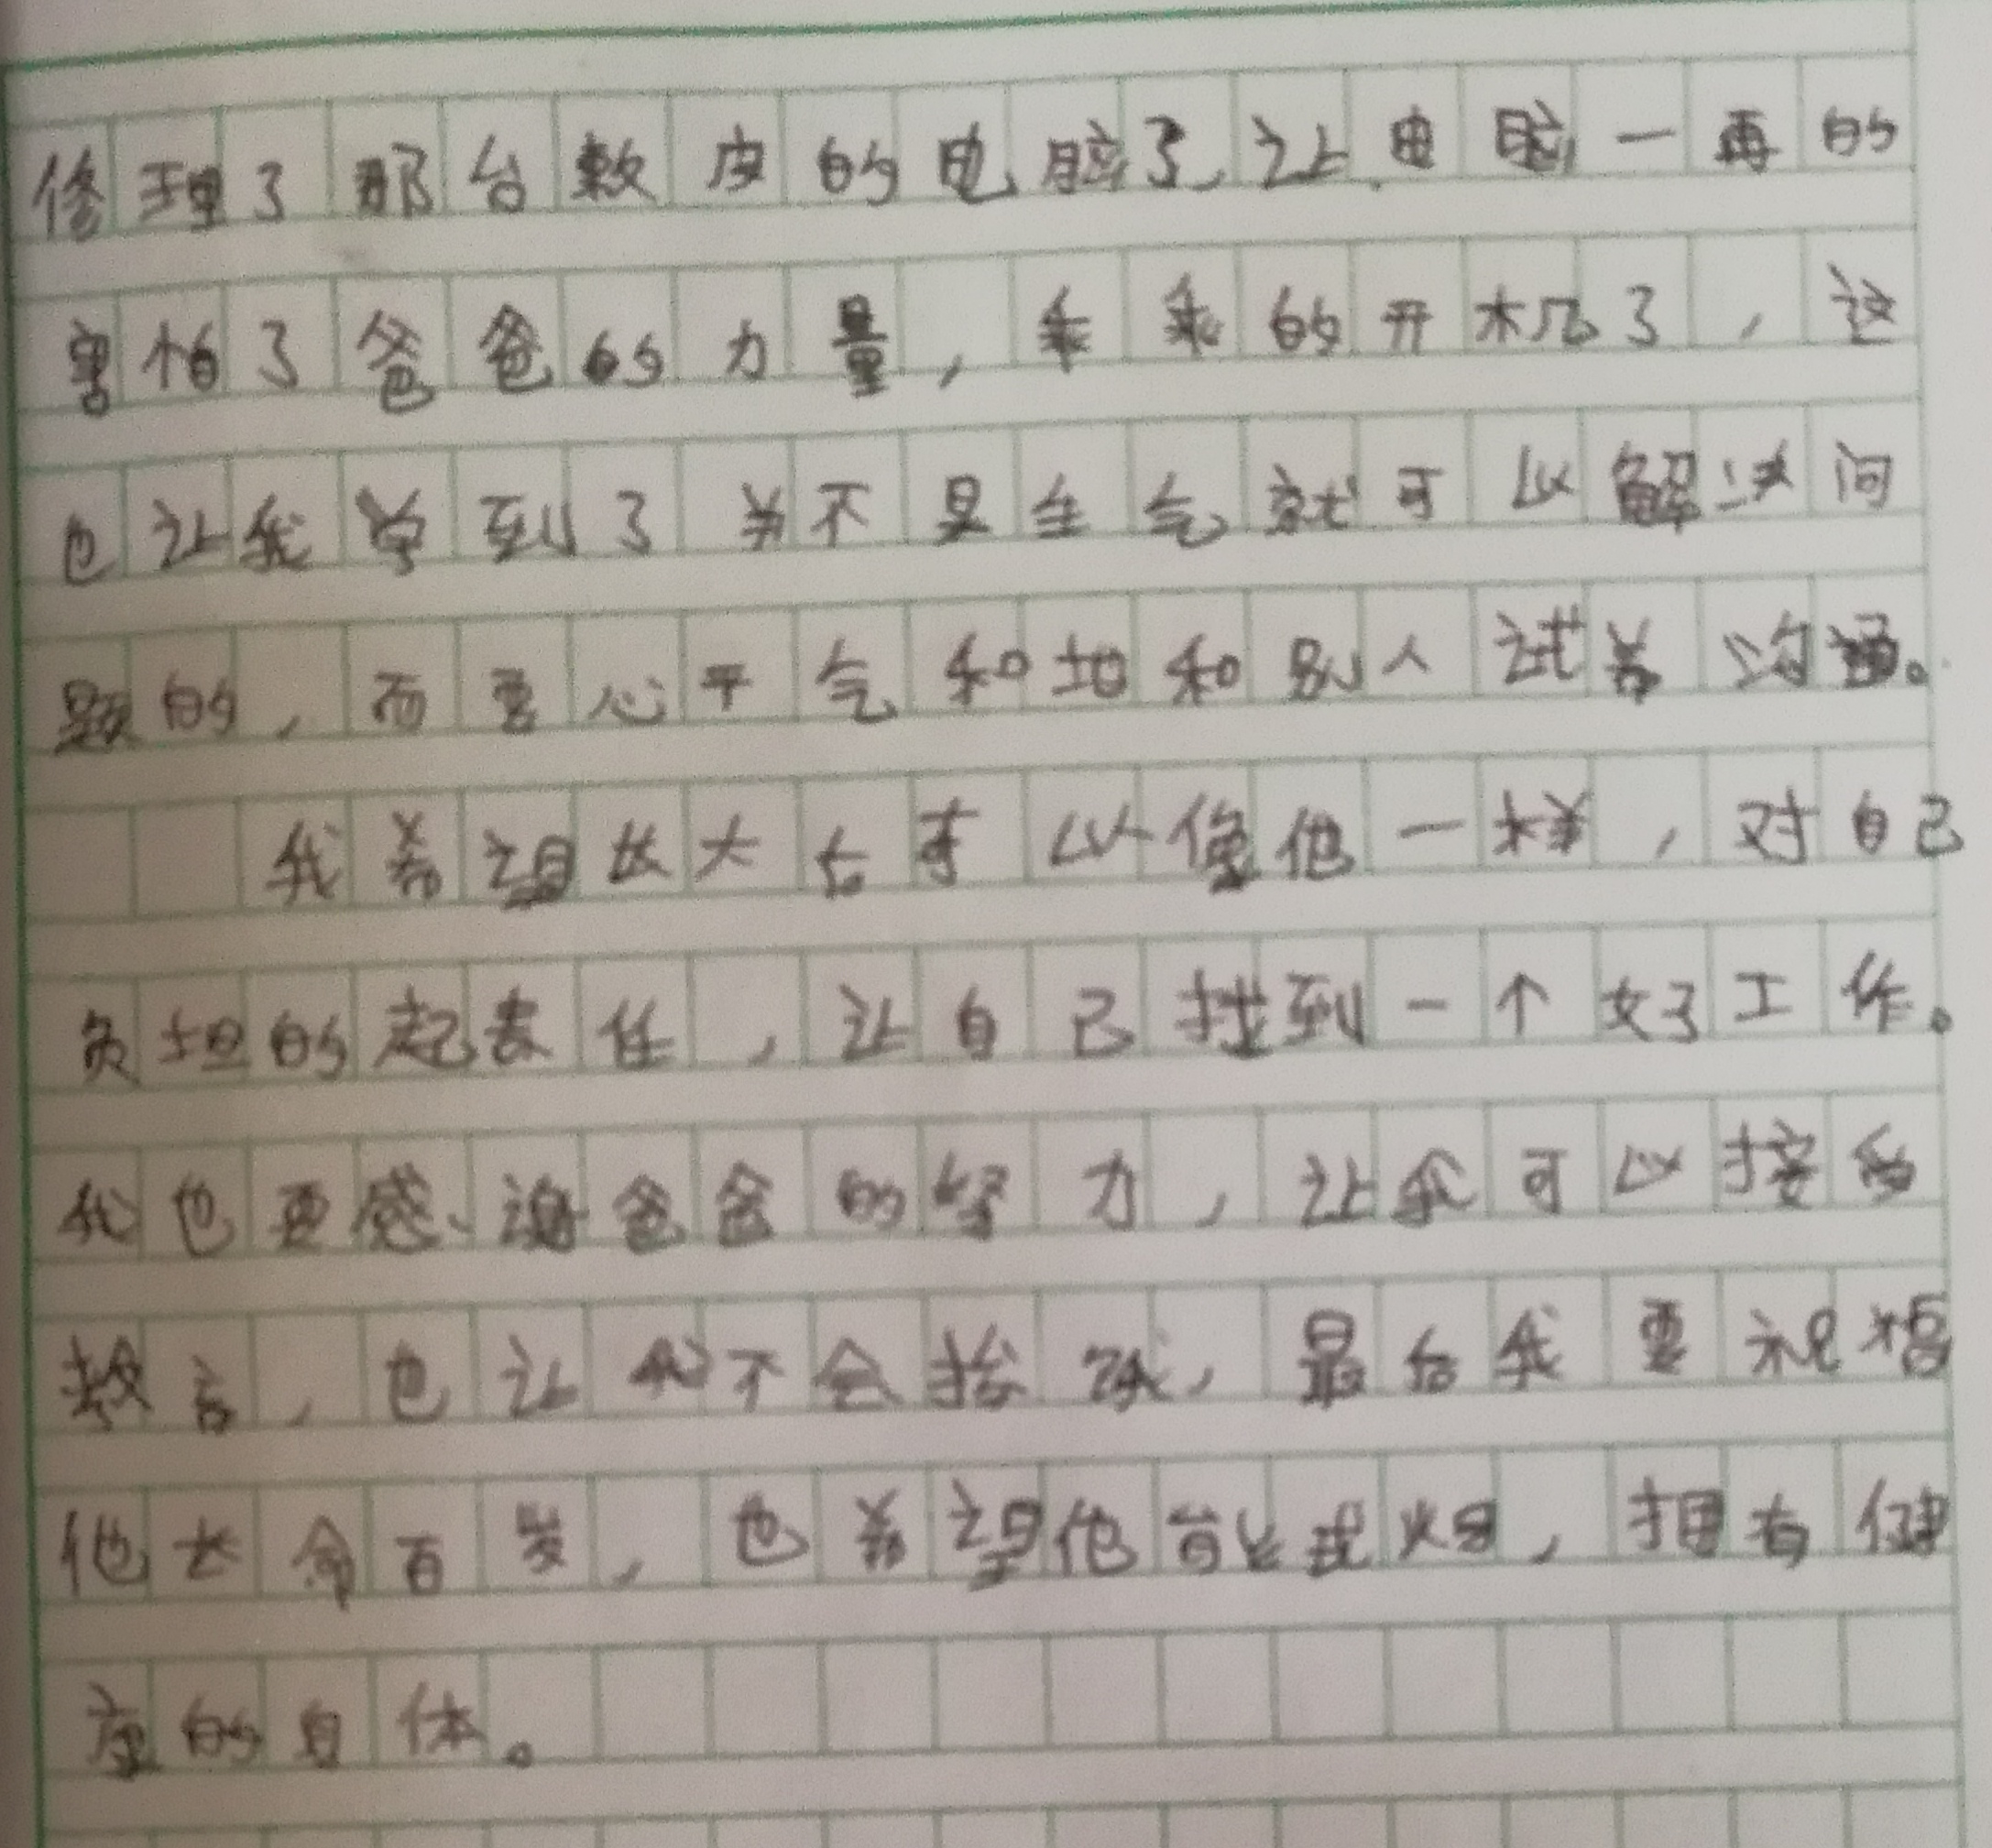 修理了那台敕皮的电脑了,让电脑一再的
害怕了爸爸的力量,乖乖的开机了,这
也让我学到了并不是生气就可以解决问
题的,而要心平气和地和别人试着沟通。
我希望长大后可以像他一样,对自己
负担的起责任,让自己找到一个好工作。
我也要感谢爸爸的努力,让我可以接受
教育,也让我不会挨饿,最后我要祝福
他长命百岁,也希望他能戒烟,拥有健
康的身体。